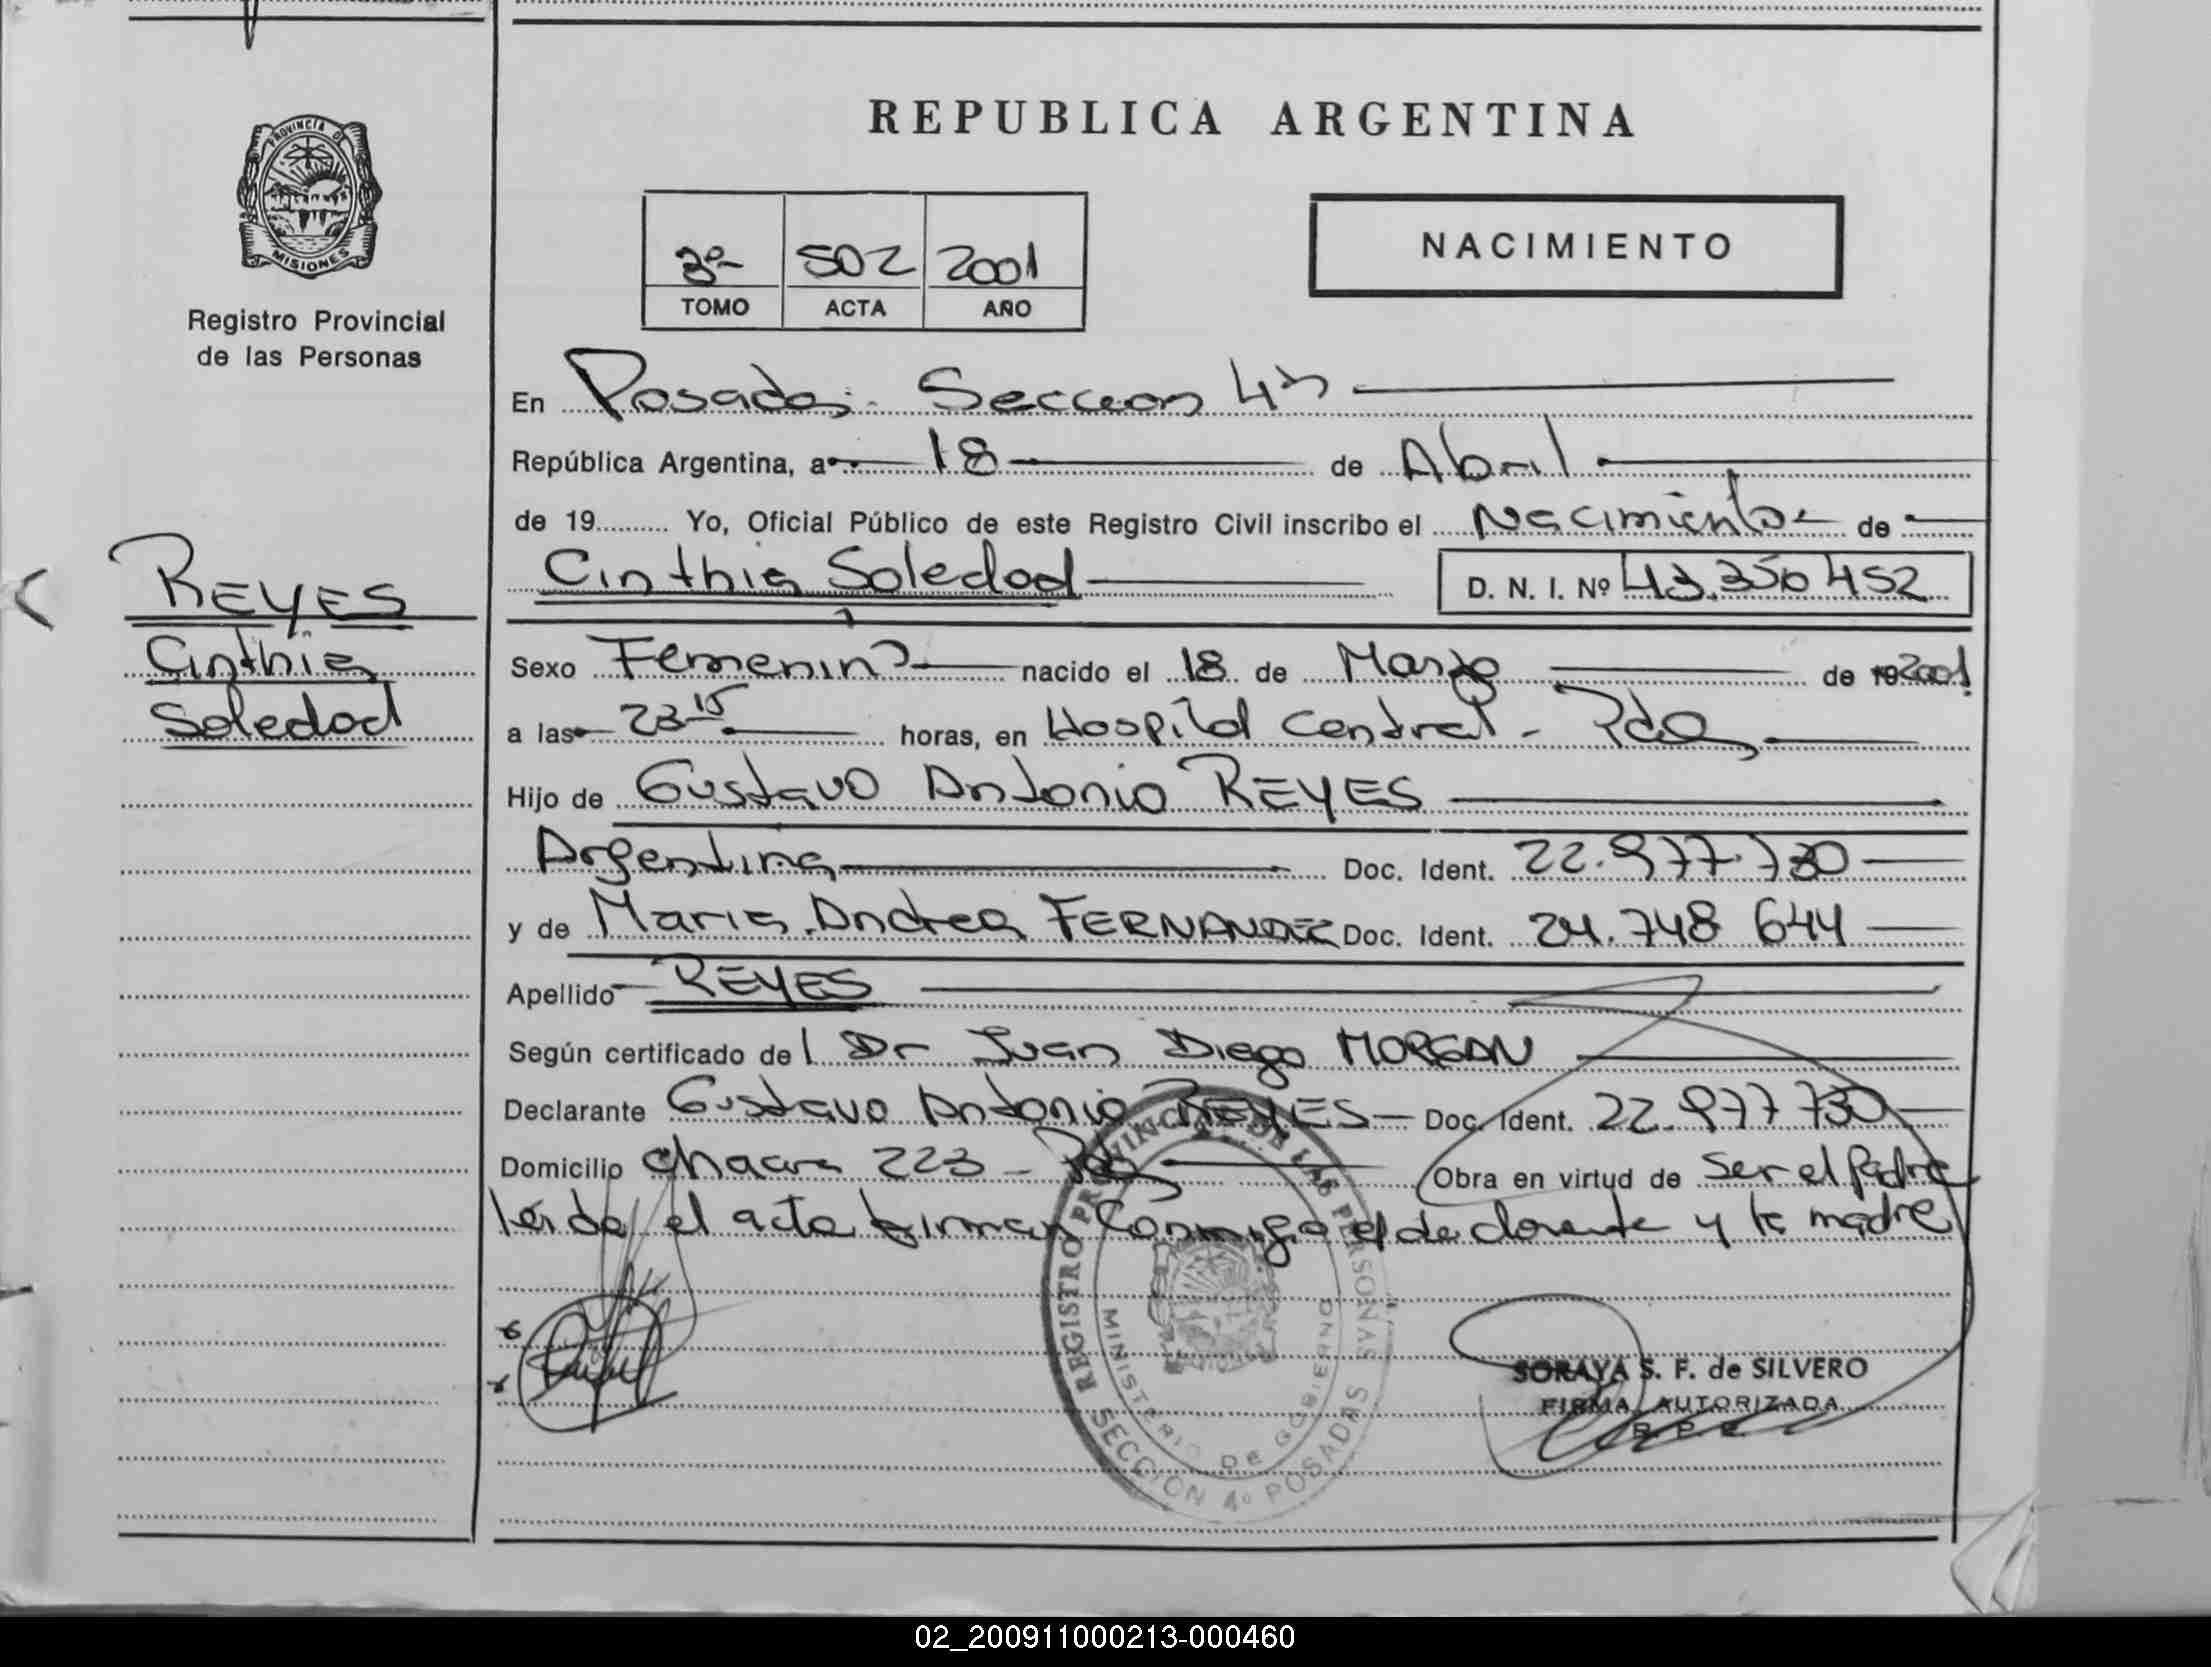 REPUBLICA ARGENTINA
PROVINCIA DE
MISIONES
Registro Provincial
de las Personas
3º 502 2001
TOMO ACTA AÑO
NACIMIENTO
En Posadas - Seccion 4ª
República Argentina, a 18 de Abril
de 19 Yo, Oficial Público de este Registro Civil inscribo el Nacimiento de
Cinthia Soledad D. N. I. Nº 43.350 452
REYES
Cinthia
Soledad
Sexo Femenino nacido el 18 de Marzo de 19 2001
a las 23 15 horas, en Hospital Central - Pdas
Hijo de Gustavo Antonio REYES
Argentina Doc. Ident. 22.977.730
y de Maria Andrea FERNANDEZ Doc. Ident. 24.748 644
Apellido REYES
Según certificado del Dr Juan Diego MORGAN
Declarante Gustavo Antonio REYES Doc. Ident. 22.977 730
Domicilio Chacra 223 - Pdas Obra en virtud de Ser el Padre
leída el acta firman Conmigo el declarante y la madre
REGISTRO PROVINCIAL DE LAS PERSONAS
MINISTERIO DE GOBIERNO
SECCION 4º POSADAS
SORAYA S. F. de SILVERO
FIRMA AUTORIZADA
R. P. P.
02_200911000213-000460